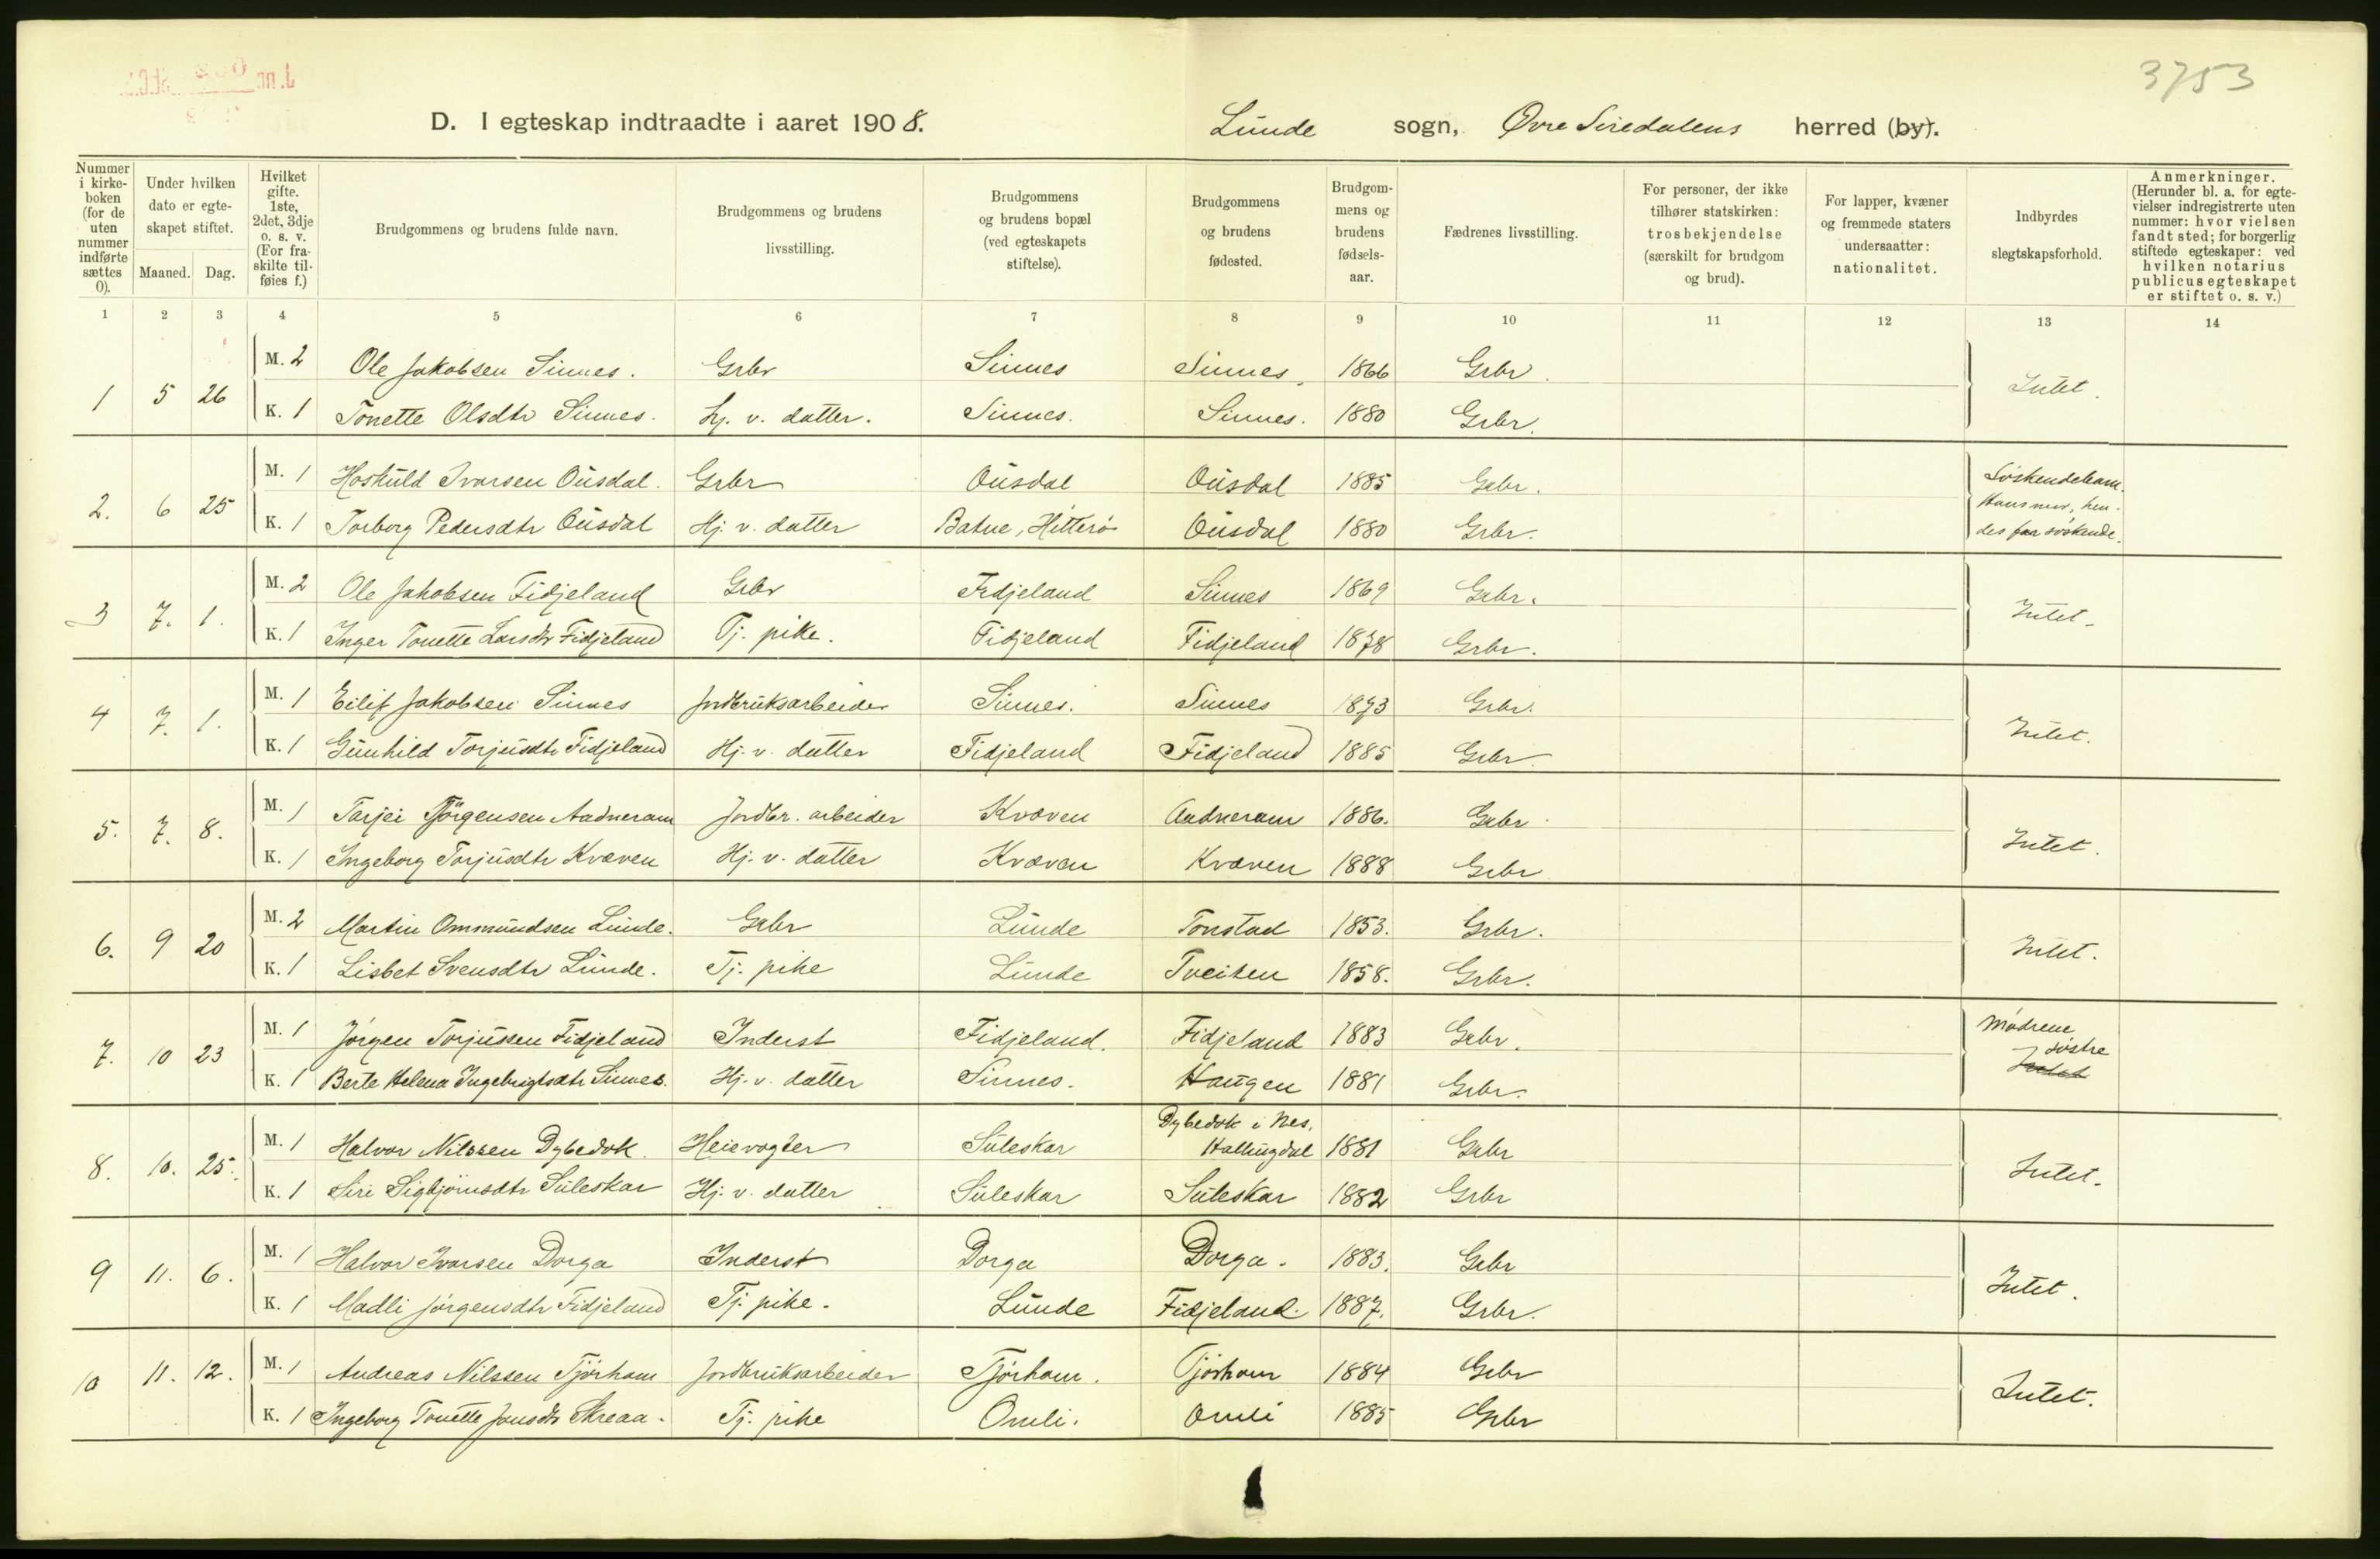 3753
D. I egteskap indtraadte i aaret 1908. Lunde sogn, Øvre Siredalens herred (by).
Nummer i kirkeboken (for de uten nummer indførte sættes 0).
Under hvilken dato er egteskapet stiftet.
Maaned. Dag.
Hvilket gifte. 1ste, 2det, 3dje o. s. v. (For fraskilte tilføies f.)
Brudgommens og brudens fulde navn.
Brudgommens og brudens livsstilling.
Brudgommens og brudens bopæl (ved egteskapets stiftelse).
Brudgommens og brudens fødested.
Brudgommens og brudens fødselsaar.
Fædrenes livsstilling.
For personer, der ikke tilhører statskirken: trosbekjendelse (særskilt for brudgom og brud).
For lapper, kvæner og fremmede staters undersaatter: nationalitet.
Indbyrdes slegtskapsforhold.
Anmerkninger. (Herunder bl. a. for egtevielser indregistrerte uten nummer: hvor vielsen fandt sted; for borgerlig stiftede egteskaper: ved hvilken notarius publicus egteskapet er stiftet o. s. v.)
1 2 3 4 5 6 7 8 9 10 11 12 13 14
1 5 26 M. 2 Ole Jakobsen Sinnes. Grbr Sinnes Sinnes. 1866 Grbr. Intet.
K. 1 Tonette Olsdtr Sinnes. hj. v. datter. Sinnes. Sinnes. 1880 Grbr.
2. 6 25 M. 1 Hoskuld Ivarsen Ousdal. Grbr Ousdal Ousdal 1885 Grbr. Søskendebarn. Hans mor, hen-
K. 1 Torborg Pedersdtr Ousdal Hj. v. datter Batne, Hitterø Ousdal 1880 Grbr. des far søskende.
3 7. 1. M. 2 Ole Jakobsen Fidjeland Grbr Fidjeland Sinnes 1869 Grbr. Intet.
K. 1 Inger Tonette Larsdtr Fidjeland Tj. pike. Fidjeland Fidjeland 1878 Grbr.
4 7. 1. M. 1 Eilif Jakobsen Sinnes Jordbruksarbeider Sinnes. Sinnes 1873 Grbr. Intet.
K. 1 Gunhild Torjusdtr Fidjeland Hj. v. datter Fidjeland Fidjeland 1885 Grbr.
5. 7. 8. M. 1 Tarjei Jørgensen Aadneram Jordbr. arbeider Kvæven Aadneram 1886. Grbr. Intet.
K. 1 Ingeborg Torjusdtr Kvæven Hj. v. datter Kvæven Kvæven 1888 Grbr
6. 9 20 M. 2 Martin Ommundsen Lunde. Grbr Lunde Tonstad 1853. Grbr. Intet.
K. 1 Lisbet Svensdtr Lunde. Tj. pike Lunde Tveiten 1858. Grbr.
7. 10 23 M. 1 Jørgen Torjussen Fidjeland Inderst Fidjeland. Fidjeland 1883 Grbr. Mødrene søstre
K. 1 Berte Helena Ingebrigtsdtr Sinnes. Hj. v. datter Sinnes. Haugen 1881 Grbr. Intet
8. 10. 25. M. 1 Halvor Nilssen Dybedok. Heievogter Suleskar Dybedok i Nes, Hallingdal 1881 Grbr Intet.
K. 1 Siri Sigbjørnsdtr Suleskar Hj. v. datter Suleskar Suleskar 1882 Grbr
9 11. 6. M. 1 Halvor Ivarsen Dorga Inderst Dorga Dorga. 1883. Grbr Intet.
K. 1 Madli Jørgensdtr Fidjeland Tj. pike. Lunde Fidjeland. 1887. Grbr.
10 11. 12. M. 1 Andreas Nilssen Tjørhom Jordbruksarbeider Tjørhom. Tjørhom 1884 Grbr Intet.
K. 1 Ingeborg Tonette Jonsdtr Skreaa. Tj. pike Omli. Omli 1885 Grbr